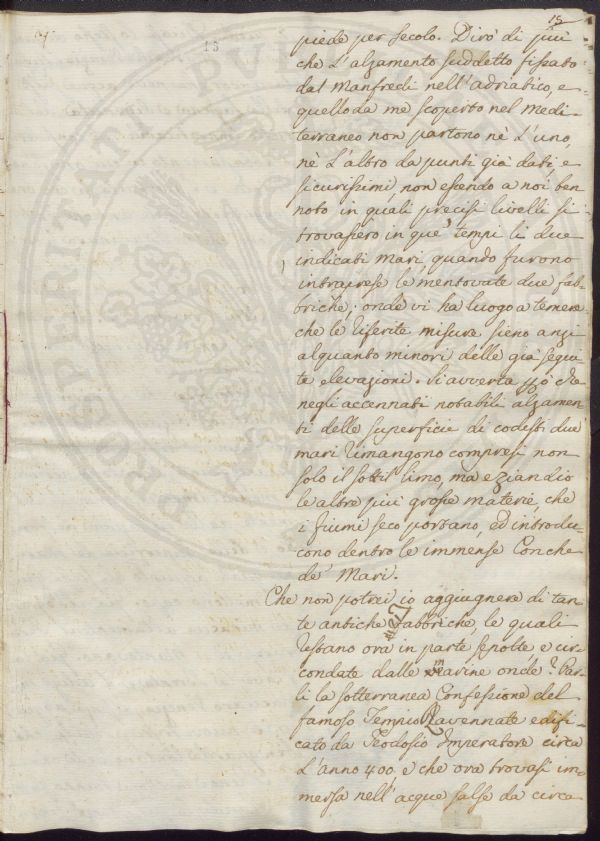 15
15
piede per secolo. Dirò di più
che l'alzamento suddetto fissato
dal Manfredi nell'adriatico, e
quello da me scoperto nel Medi-
terraneo non partono nè l'uno,
nè l'altro da punti già dati, e
sicurissimi, non essendo a noi ben
noto in quali precisi livelli si
trovassero in que' tempi li due
indicati mari quando furono
intraprese le mentovate due fab-
briche; onde vi ha luogo a temere
che le riferite misure sieno anzi
alquanto minori delle già segui-
te elevazioni. Si avverta che
negli accennati notabili alzamen-
ti delle superficie di codesti due
mari rimangono compresi non
solo il sottil limo, ma eziandio
le altre più grosse materie, che
i fiumi seco portano, ed introdu-
cono dentro le immense Conche
de' Mari.
Che non potrei io aggiugnere di tan-
te antiche fabbriche, le quali
restano ora in parte sepolte, e cir-
condate dalle marine onde? Par-
li la sotterranea Confessione del
famoso Tempio Ravennate edifi-
cato da Teodosio Imperatore circa
l'anno 400, e che ora trovasi im-
mersa nell'acque salse da circa
PROSPERITATI PUBLICAE